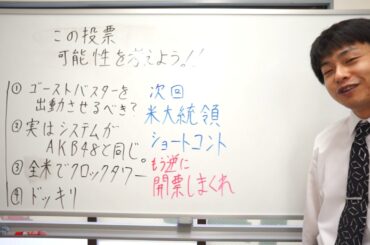 この投票
可能性を考えよう!!
① ゴーストバスターを
出動させるべき?
② 実はシステムが
AKB48と同じ。
③ 全米でクロックタワー
④ ドッキリ
次回
米大統領
ショートコント
もう逆に
開票しまくれ